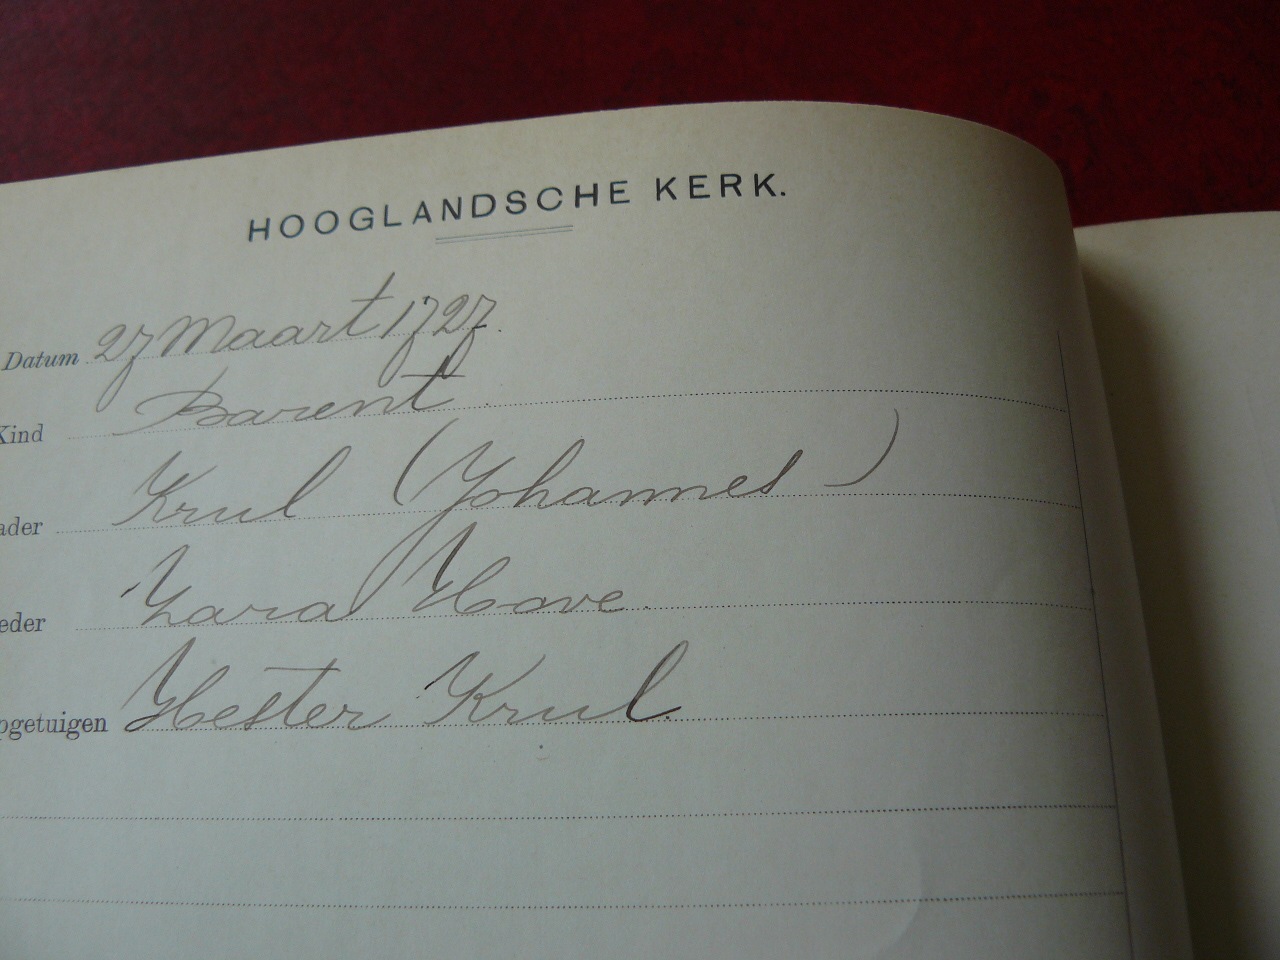 HOOGLANDSCHE KERK.
Datum 27 Maart 1727.
Kind Barent
ader Krul (Johannes)
eder Zara Hove.
pgetuigen Hester Krul.